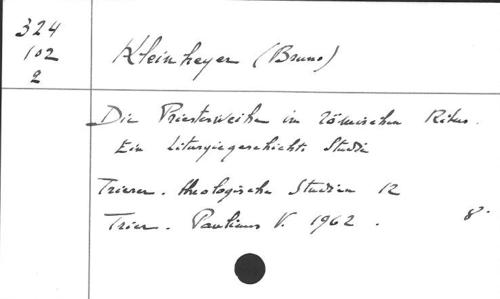 324
102
2
Kleinheyer (Bruno)
Die Priesterweihe im römischen Ritus.
Ein liturgiegeschicht. Studie
Trierer. theologische Studien 12
Trier. Paulinus V. 1962. 8°